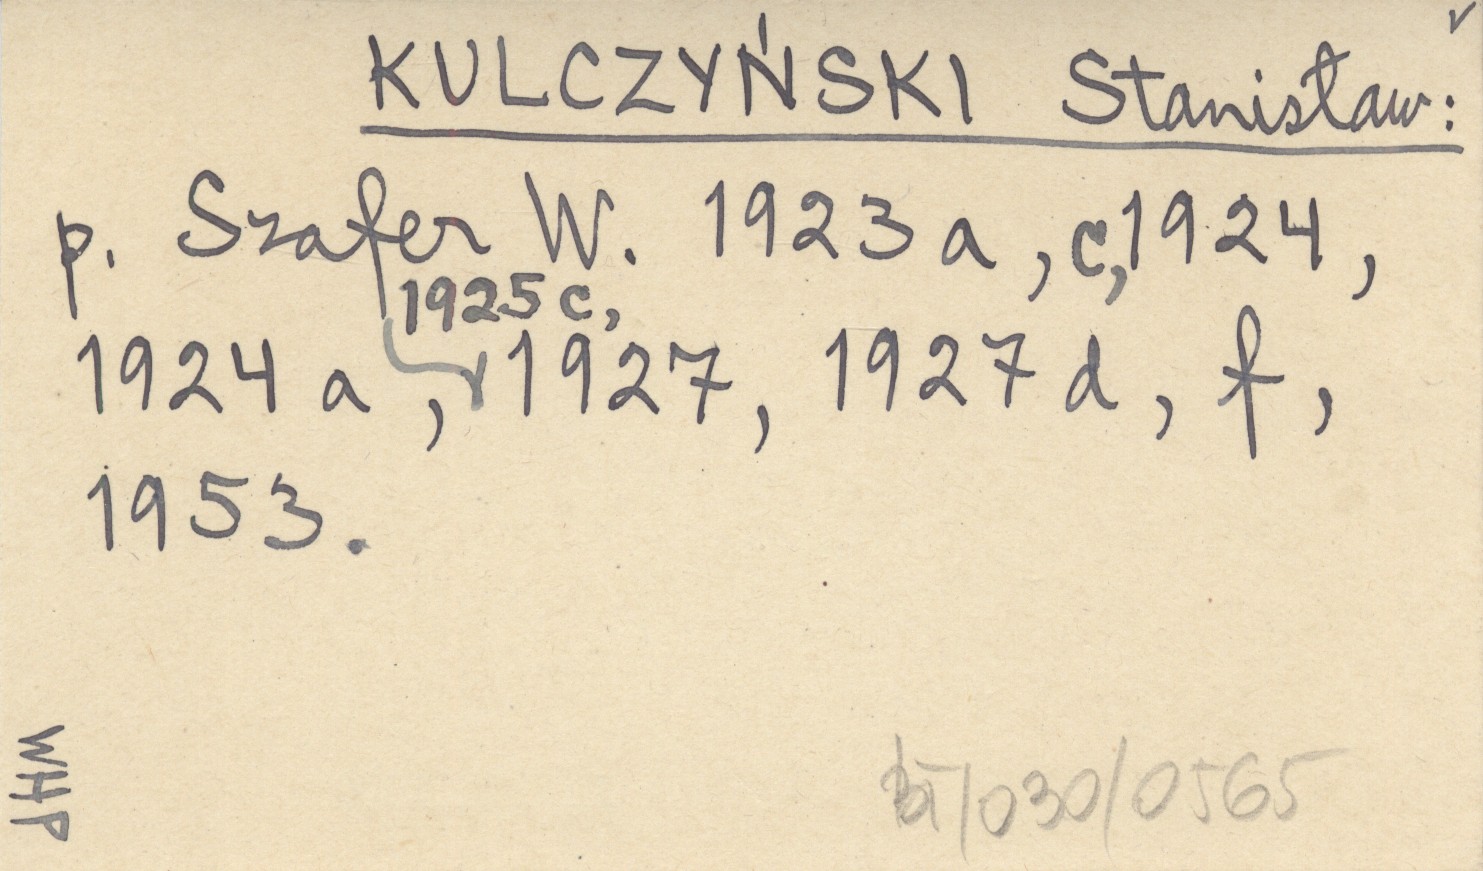 KULCZYŃSKI Stanisław:
p. Szafer W. 1923 a, c, 1924,
1925 c,
1924 a, 1927, 1927 d, f,
1953.
WHP
/030/0565